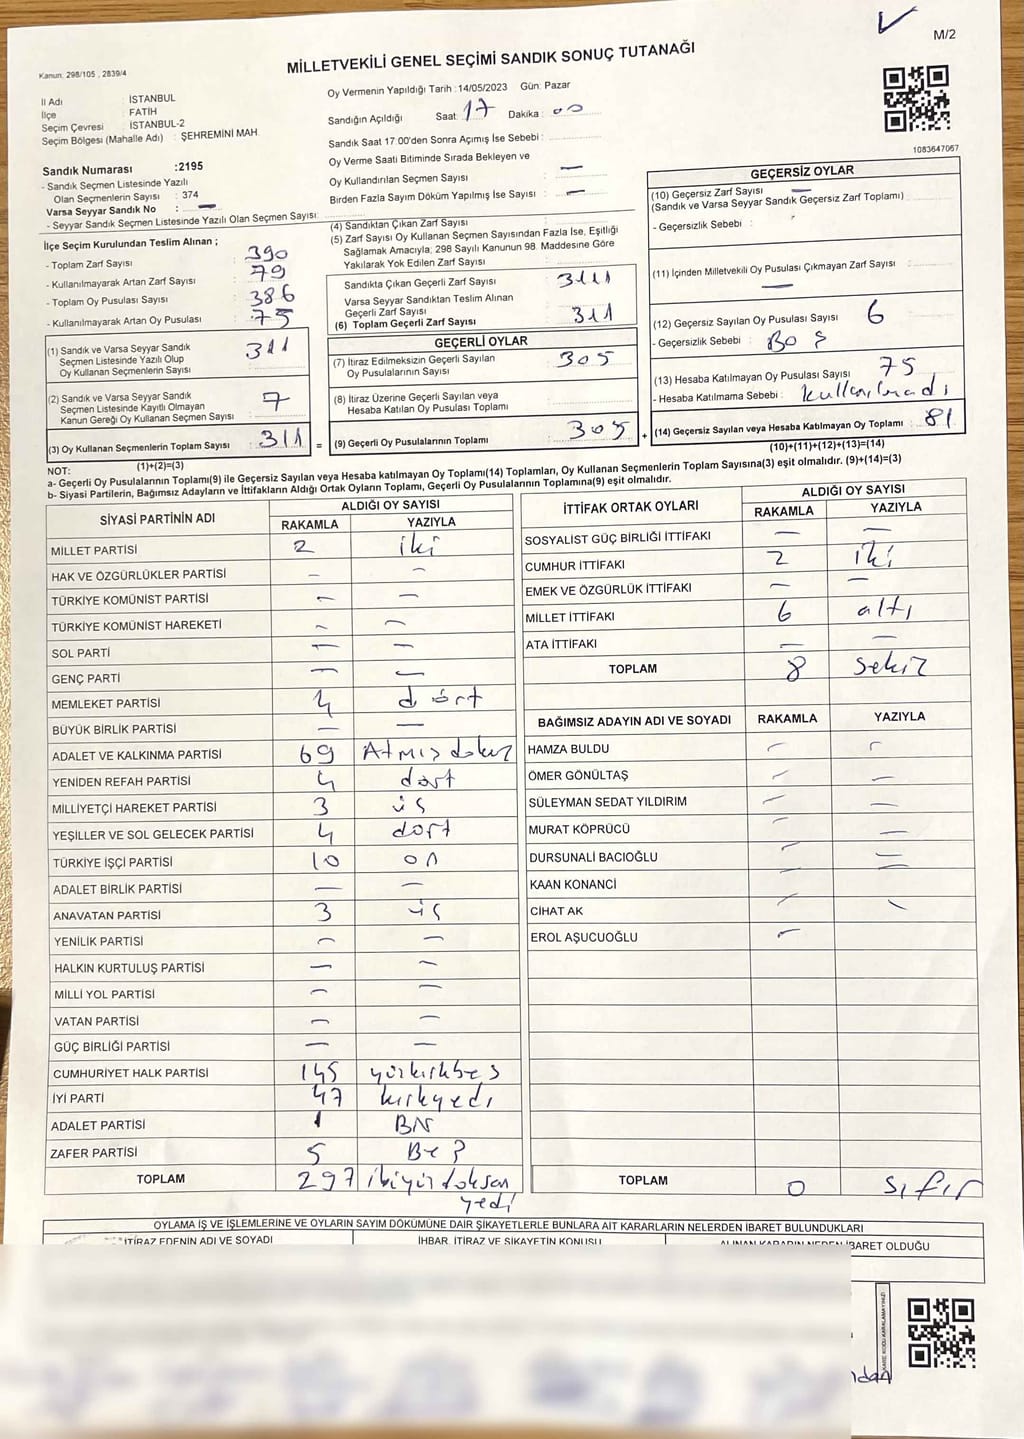 M/2
Kanun, 298/105 , 2839/4
MİLLETVEKİLİ GENEL SEÇİMİ SANDIK SONUÇ TUTANAĞI
İl Adı : İSTANBUL
İlçe : FATİH
Seçim Çevresi : İSTANBUL-2
Seçim Bölgesi (Mahalle Adı) : ŞEHREMİNİ MAH.
Oy Vermenin Yapıldığı Tarih : 14/05/2023 Gün: Pazar
Sandığın Açıldığı Saat: 17 Dakika : 00
Sandık Saat 17 00'den Sonra Açımış İse Sebebi :
Oy Verme Saati Bitiminde Sırada Bekleyen ve
Oy Kullandırılan Seçmen Sayısı : —
Birden Fazla Sayım Döküm Yapılmış İse Sayısı : —
1083647067
Sandık Numarası :2195
- Sandık Seçmen Listesinde Yazılı
Olan Seçmenlerin Sayısı : 374
Varsa Seyyar Sandık No : —
- Seyyar Sandık Seçmen Listesinde Yazılı Olan Seçmen Sayısı :
İlçe Seçim Kurulundan Teslim Alınan ;
- Toplam Zarf Sayısı : 390
- Kullanılmayarak Artan Zarf Sayısı : 79
- Toplam Oy Pusulası Sayısı : 386
- Kullanılmayarak Artan Oy Pusulası : 75
(1) Sandık ve Varsa Seyyar Sandık
Seçmen Listesinde Yazılı Olup
Oy Kullanan Seçmenlerin Sayısı : 311
(2) Sandık ve Varsa Seyyar Sandık
Seçmen Listesinde Kayıtlı Olmayan
Kanun Gereği Oy Kullanan Seçmen Sayısı : 7
(3) Oy Kullanan Seçmenlerin Toplam Sayısı : 311
(1)+(2)=(3)
(4) Sandıktan Çıkan Zarf Sayısı :
(5) Zarf Sayısı Oy Kullanan Seçmen Sayısından Fazla İse, Eşitliği
Sağlamak Amacıyla; 298 Sayılı Kanunun 98. Maddesine Göre
Yakılarak Yok Edilen Zarf Sayısı :
Sandıkta Çıkan Geçerli Zarf Sayısı : 3111
Varsa Seyyar Sandıktan Teslim Alınan
Geçerli Zarf Sayısı :
(6) Toplam Geçerli Zarf Sayısı : 311
GEÇERLİ OYLAR
(7) İtiraz Edilmeksizin Geçerli Sayılan
Oy Pusulalarının Sayısı : 305
(8) İtiraz Üzerine Geçerli Sayılan veya
Hesaba Katılan Oy Pusulası Toplamı :
= (9) Geçerli Oy Pusulalarının Toplamı : 305
GEÇERSİZ OYLAR
(10) Geçersiz Zarf Sayısı : —
(Sandık ve Varsa Seyyar Sandık Geçersiz Zarf Toplamı)
- Geçersizlik Sebebi :
(11) İçinden Milletvekili Oy Pusulası Çıkmayan Zarf Sayısı : —
(12) Geçersiz Sayılan Oy Pusulası Sayısı : 6
- Geçersizlik Sebebi : BOŞ
(13) Hesaba Katılmayan Oy Pusulası Sayısı : 75
- Hesaba Katılmama Sebebi : kullanılmadı
+ (14) Geçersiz Sayılan veya Hesaba Katılmayan Oy Toplamı : 81
(10)+(11)+(12)+(13)=(14)
NOT:
a- Geçerli Oy Pusulasının Toplamı(9) ile Geçersiz Sayılan veya Hesaba katılmayan Oy Toplamı(14) Toplamları, Oy Kullanan Seçmenlerin Toplam Sayısına(3) eşit olmalıdır. (9)+(14)=(3)
b- Siyasi Partilerin, Bağımsız Adayların ve İttifakların Aldığı Ortak Oyların Toplamı, Geçerli Oy Pusulalarının Toplamına(9) eşit olmalıdır.
SİYASİ PARTİNİN ADI ALDIĞI OY SAYISI
RAKAMLA YAZIYLA
MİLLET PARTİSİ 2 iki
HAK VE ÖZGÜRLÜKLER PARTİSİ — —
TÜRKİYE KOMÜNİST PARTİSİ — —
TÜRKİYE KOMÜNİST HAREKETİ — —
SOL PARTİ — —
GENÇ PARTİ — —
MEMLEKET PARTİSİ 4 dört
BÜYÜK BİRLİK PARTİSİ — —
ADALET VE KALKINMA PARTİSİ 69 Atmışdokuz
YENİDEN REFAH PARTİSİ 4 dört
MİLLİYETÇİ HAREKET PARTİSİ 3 üç
YEŞİLLER VE SOL GELECEK PARTİSİ 4 dört
TÜRKİYE İŞÇİ PARTİSİ 10 on
ADALET BİRLİK PARTİSİ — —
ANAVATAN PARTİSİ 3 üç
YENİLİK PARTİSİ — —
HALKIN KURTULUŞ PARTİSİ — —
MİLLİ YOL PARTİSİ — —
VATAN PARTİSİ — —
GÜÇ BİRLİĞİ PARTİSİ — —
CUMHURİYET HALK PARTİSİ 145 yüzkırkbeş
İYİ PARTİ 47 kırkyedi
ADALET PARTİSİ 1 Bir
ZAFER PARTİSİ 5 Beş
TOPLAM 297 ikiyüzdoksan
yedi
İTTİFAK ORTAK OYLARI ALDIĞI OY SAYISI
RAKAMLA YAZIYLA
SOSYALİST GÜÇ BİRLİĞİ İTTİFAKI — —
CUMHUR İTTİFAKI 2 iki
EMEK VE ÖZGÜRLÜK İTTİFAKI — —
MİLLET İTTİFAKI 6 altı
ATA İTTİFAKI — —
TOPLAM 8 sekiz
BAĞIMSIZ ADAYIN ADI VE SOYADI RAKAMLA YAZIYLA
HAMZA BULDU — —
ÖMER GÖNÜLTAŞ — —
SÜLEYMAN SEDAT YILDIRIM — —
MURAT KÖPRÜCÜ — —
DURSUNALİ BACIOĞLU — —
KAAN KONANCİ — —
CİHAT AK — —
EROL AŞUCUOĞLU —
TOPLAM 0 sıfır
OYLAMA İŞ VE İŞLEMLERİNE VE OYLARIN SAYIM DÖKÜMÜNE DAİR ŞİKAYETLERLE BUNLARA AİT KARARLARIN NELERDEN İBARET BULUNDUKLARI
İTİRAZ EDENİN ADI VE SOYADI İHBAR, İTİRAZ VE ŞİKAYETİN KONUSU ALINAN KARARIN NEDEN İBARET OLDUĞU